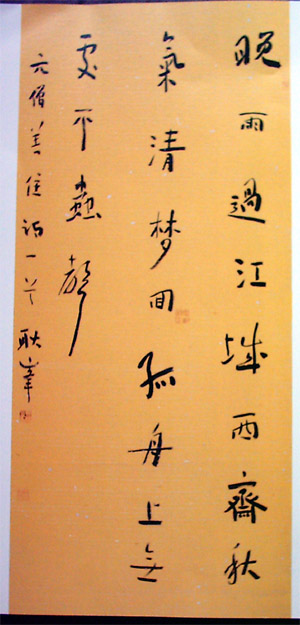 晚雨過江城西齋秋
氣清梦回孤舟上無
處不蟲聲
元僧善住詩一首耿峯